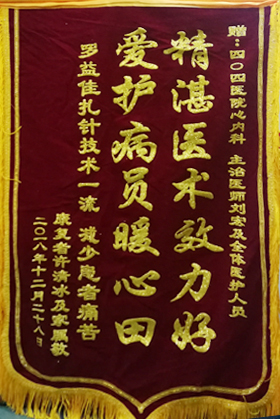 赠：四〇四医院心内科 主治医师刘寒及全体医护人员
精湛医术效力好
爱护病员暖心田
罗益佳扎针技术一流 减少患者痛苦
康复者许清冰及家属敬
二〇一八年十二月二十八日